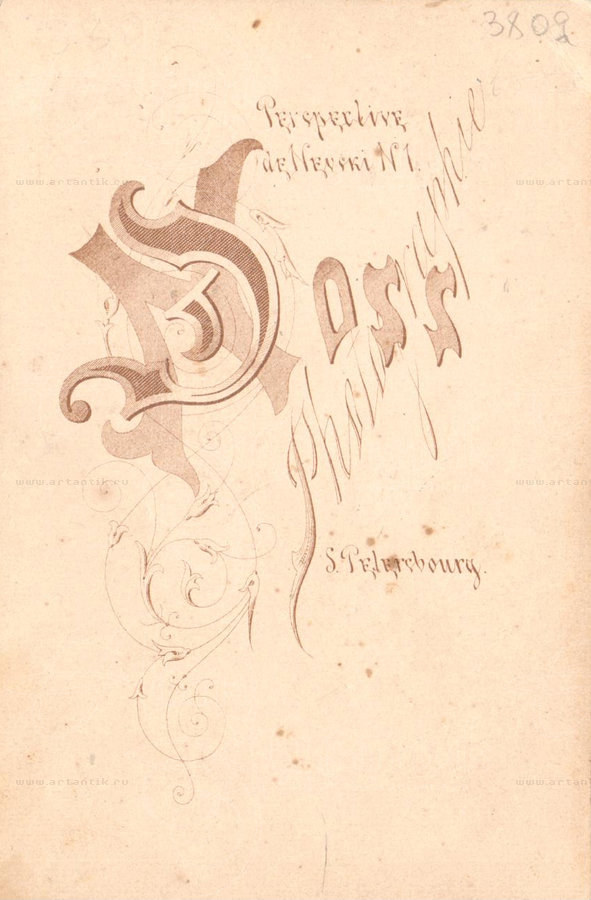 3809
Perspective
de Nevski N 1.
Doss
Photographie
S. Petersbourg.
www.artantik.ru
www.artantik.ru
www.artantik.ru
www.artantik.ru
www.artantik.ru
www.artantik.ru